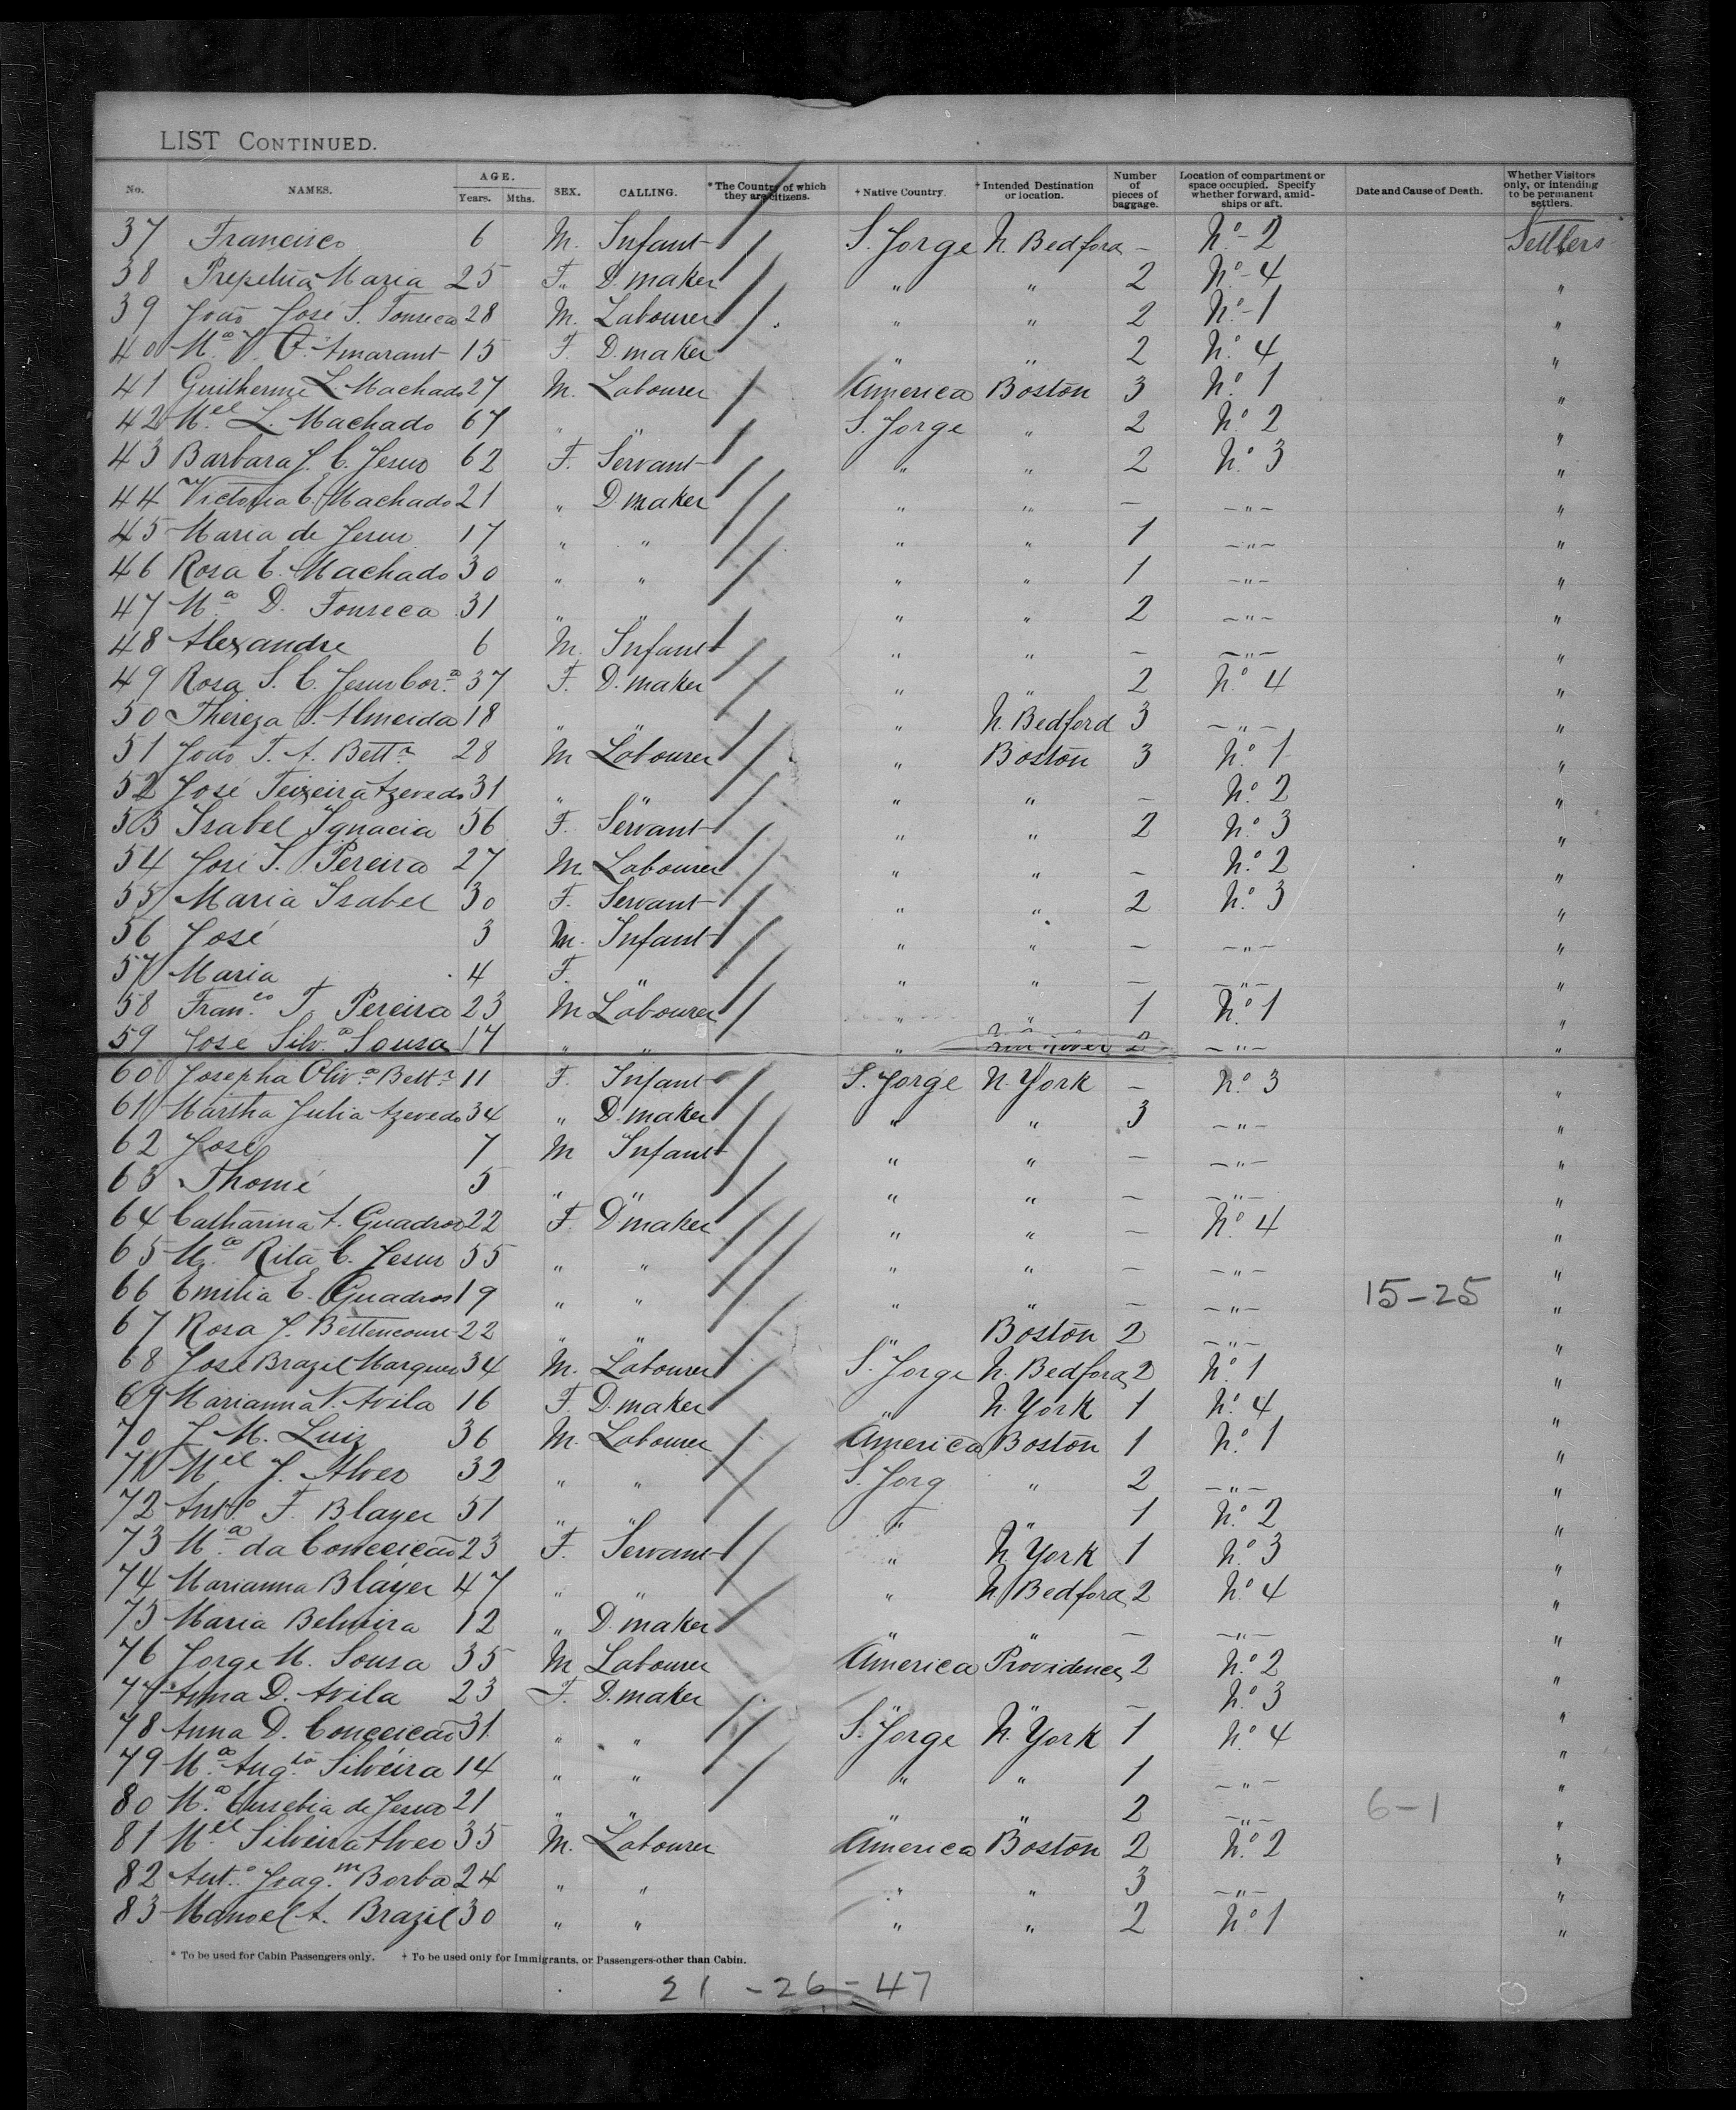 LIST CONTINUED.
No. NAMES. AGE. Years. Mths. SEX. CALLING. *The Country of which they are citizens. †Native Country. †Intended Destination or location. Number of pieces of baggage. Location of compartment or space occupied. Specify whether forward, amidships or aft. Date and Cause of Death. Whether Visitors only, or intending to be permanent settlers.
37 Francisco 6 M. Infant S. Jorge N. Bedford – Nº 2 Settlers
38 Prepetua Maria 25 F. D. maker " " 2 Nº 4 "
39 João José S. Fonseca 28 M. Labourer " " 2 Nº 1 "
40 Mª Amarant 15 F. D. maker " " 2 Nº 4 "
41 Guilherme L. Machado 27 M. Labourer America Boston 3 Nº 1 "
42 Mel L. Machado 67 " " S. Jorge " 2 Nº 2 "
43 Barbara J. C. Jesus 62 F. Servant " " 2 Nº 3 "
44 Victoria C. Machado 21 " D maker " " – – " – "
45 Maria de Jesus 17 " " " " 1 – " – "
46 Rosa C. Machado 30 " " " " 1 – " – "
47 Mª D. Fonseca 31 " " " " 2 – " – "
48 Alexandre 6 M. Infant " " – – " – "
49 Rosa S. C. Jesus Corª 37 F. D. maker " " 2 Nº 4 "
50 Thereza S. Almeida 18 " " " N. Bedford 3 – " – "
51 João T. A. Bettr 28 M Labourer " Boston 3 Nº 1 "
52 José Teixeira Azevedo 31 " " " " – Nº 2 "
53 Isabel Ignacia 56 F. Servant " " 2 Nº 3 "
54 José S. Pereira 27 M. Labourer " " – Nº 2 "
55 Maria Isabel 30 F. Servant " " 2 Nº 3 "
56 José 3 M. Infant " " – – " – "
57 Maria 4 F. " " " – – " – "
58 Franco T. Pereira 23 M Labourer " " 1 Nº 1 "
59 José Silvª Sousa 17 " " " 2 – " – "
60 Josepha Olivª Bettr 11 F. Infant S. Jorge N. York – Nº 3 "
61 Martha Julia Azevedo 34 " D. maker " " 3 – " – "
62 José 7 M Infant " " – – " – "
63 Thomé 5 " " " " – – " – "
64 Catharina A. Quadros 22 F. D maker " " – Nº 4 "
65 Mª Rita C. Jesus 55 " " " " – – " – "
66 Emilia E. Quadros 19 " " " " – – " – 15–25 "
67 Rosa J. Bettencourt 22 " " " Boston 2 – " – "
68 José Brazil Marques 34 M. Labourer S. Jorge N. Bedford 2 Nº 1 "
69 Marianna V. Avila 16 F. D. maker " N. York 1 Nº 4 "
70 J. M. Luiz 36 M. Labourer America Boston 1 Nº 1 "
71 Mel J. Alves 32 " " S. Jorg " 2 – " – "
72 Antº F. Blayer 51 " " " " 1 Nº 2 "
73 Mª da Conceicão 23 F. Servant " N. York 1 Nº 3 "
74 Marianna Blayer 47 " " " N. Bedford 2 Nº 4 "
75 Maria Belmira 12 " D. maker " " – – " – "
76 Jorge M. Sousa 35 M Labourer America Providence 2 Nº 2 "
77 Anna D. Avila 23 F. D. maker " " – Nº 3 "
78 Anna D. Conceicão 31 " " S. Jorge N. York 1 Nº 4 "
79 Mª Augta Silveira 14 " " " " 1 – " – "
80 Mª Eusebia de Jesus 21 " " " " 2 – " – 6–1 "
81 Mel Silveira Alves 35 M. Labourer America Boston 2 Nº 2 "
82 Antº Joaqm Borba 24 " " " " 3 – " – "
83 Manoel A. Brazil 30 " " " " 2 Nº 1 "
* To be used for Cabin Passengers only. † To be used only for Immigrants, or Passengers other than Cabin.
21 – 26 = 47